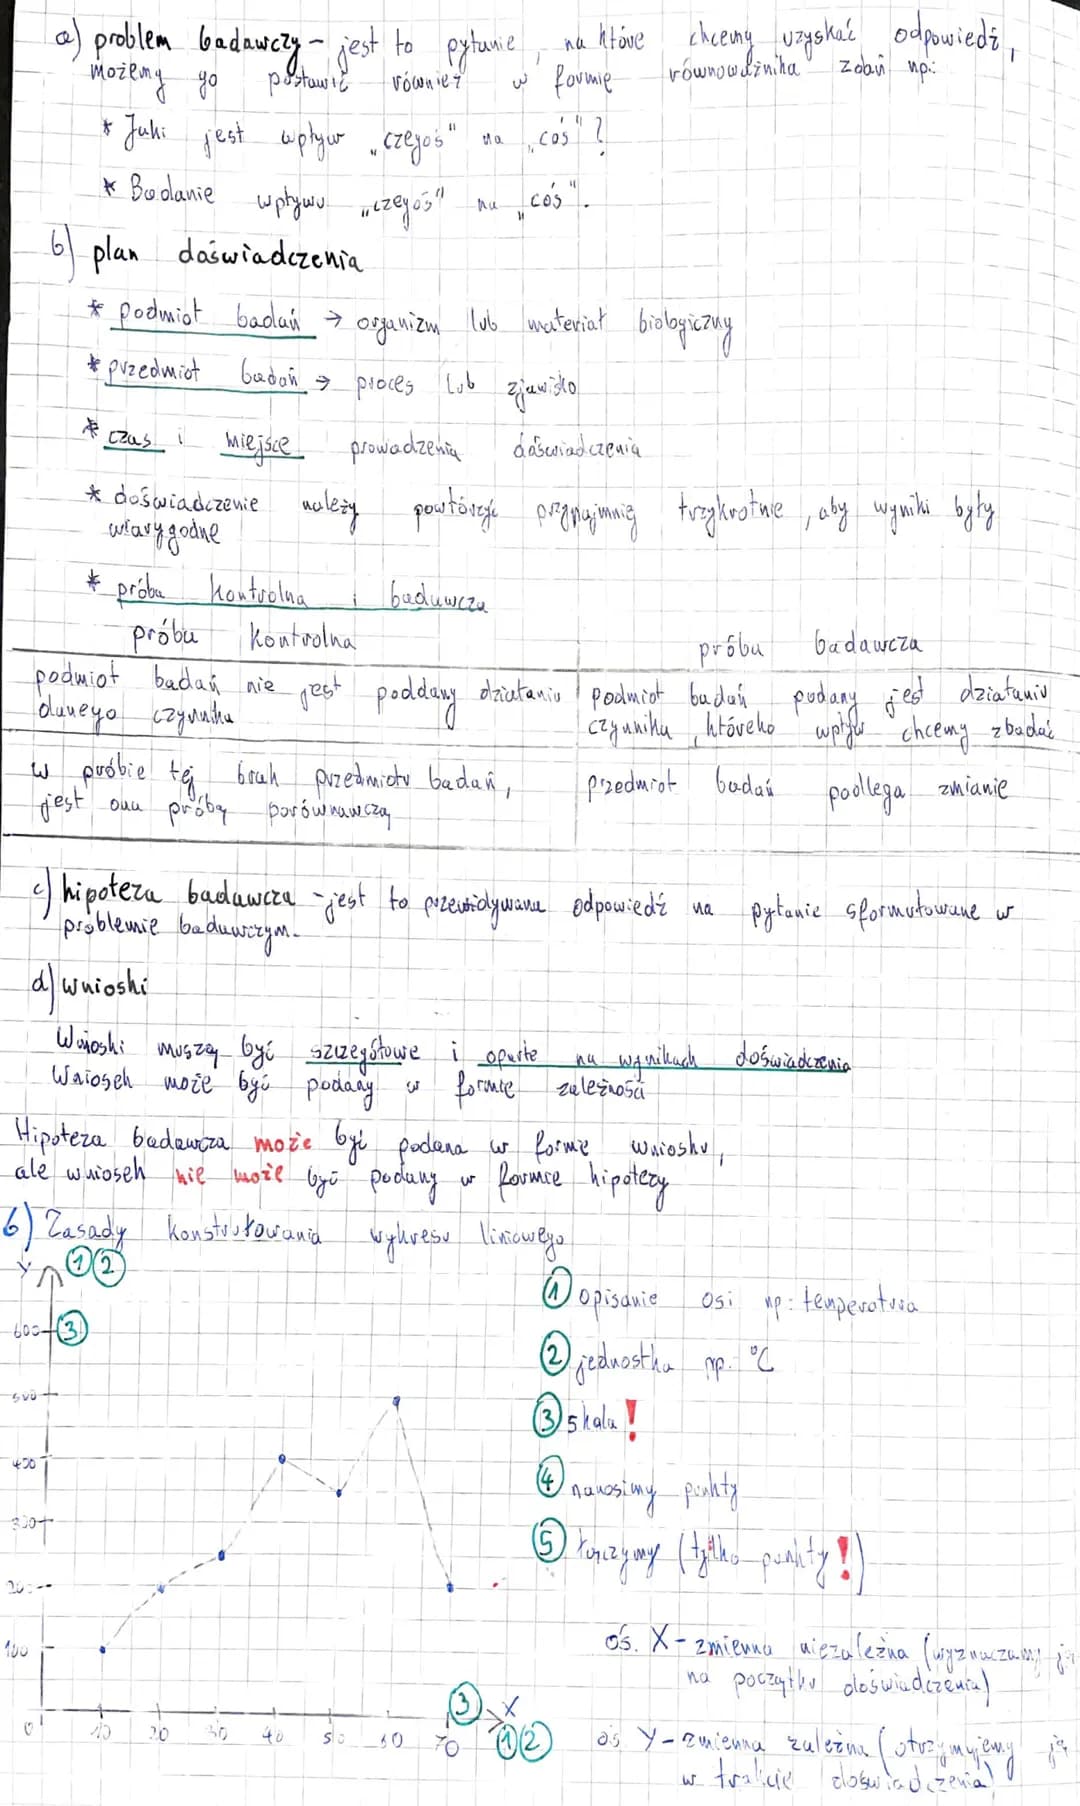 a) problem badawczy - jest to pytanie, na które chcemy uzyskać odpowiedź,
możemy go postawić również w formie równoważnika zdań np.:
* Jaki jest wpływ „czegoś" na „coś"?
* Badanie wpływu „czegoś" na „coś".
b) plan doświadczenia
* podmiot badań → organizm lub materiał biologiczny
* przedmiot badań → proces lub zjawisko
* czas i miejsce prowadzenia doświadczenia
* doświadczenie należy powtórzyć przynajmnię trzykrotnie, aby wyniki były
wiarygodne
* próba kontrolna i badawcza
próba kontrolna
próba badawcza
podmiot badań nie jest poddany działaniu
danego czynnika
podmiot badań podany jest działaniu
czynnika, któreko wpływ chcemy zbadać
w próbie tej brak przedmiotu badań,
jest ona próbą porównawczą
przedmiot badań podlega zmianie
c) hipoteza badawcza - jest to przewidywana odpowiedź na pytanie sformułowane w
problemie badawczym.
d) wnioski
Wnioski muszą być szczegółowe i oparte na wynikach doświadczenia
Wniosek może być podany w formie zależności
Hipoteza badawcza może być podana w formie wniosku,
ale wniosek nie może być podany w formie hipotezy
6) Zasady konstruowania wykresu liniowego
Y ① ②
600 ③
500
400
300
200
100
0 10 20 30 40 50 60 70
③ X
① ②
① opisanie osi np: temperatura
② jednostka np. °C
③ skala !
④ nanosimy punkty
⑤ łączymy (tylko punkty!)
oś. X - zmienna niezależna (wyznaczamy ją
na początku doświadczenia)
oś. Y - zmienna zależna (otrzymujemy ją
w trakcie doświadczenia)